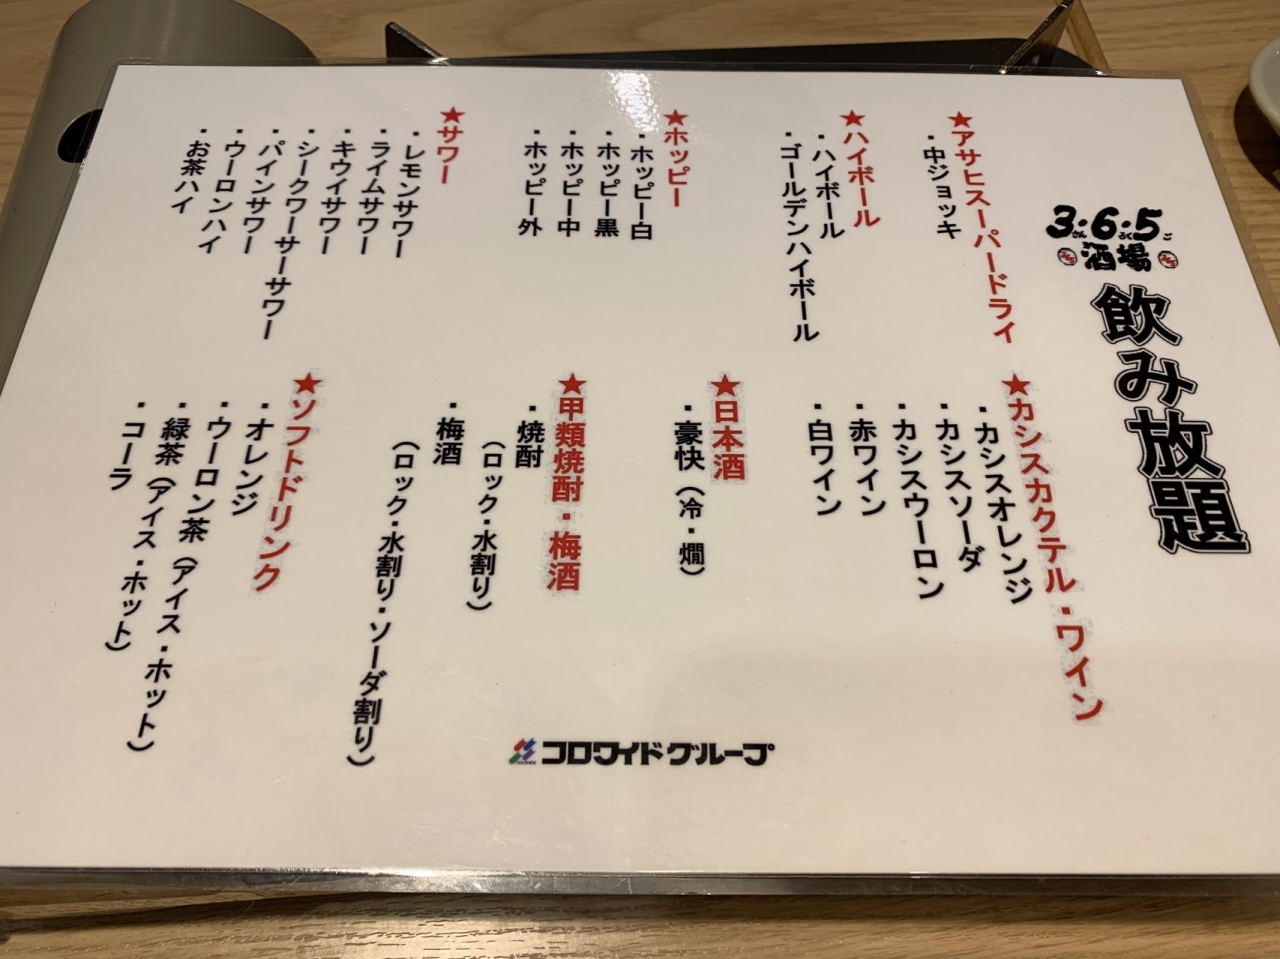 3・6・5
さん ろく ご
酒場
飲み放題
★アサヒスーパードライ
・中ジョッキ
★ハイボール
・ハイボール
・ゴールデンハイボール
★ホッピー
・ホッピー白
・ホッピー黒
・ホッピー中
・ホッピー外
★サワー
・レモンサワー
・ライムサワー
・キウイサワー
・シークワーサーサワー
・パインサワー
・ウーロンハイ
・お茶ハイ
★カシスカクテル・ワイン
・カシスオレンジ
・カシスソーダ
・カシスウーロン
・赤ワイン
・白ワイン
★日本酒
・豪快（冷・燗）
★甲類焼酎・梅酒
・焼酎
（ロック・水割り）
・梅酒
（ロック・水割り・ソーダ割り）
★ソフトドリンク
・オレンジ
・ウーロン茶（アイス・ホット）
・緑茶（アイス・ホット）
・コーラ
コロワイドグループ